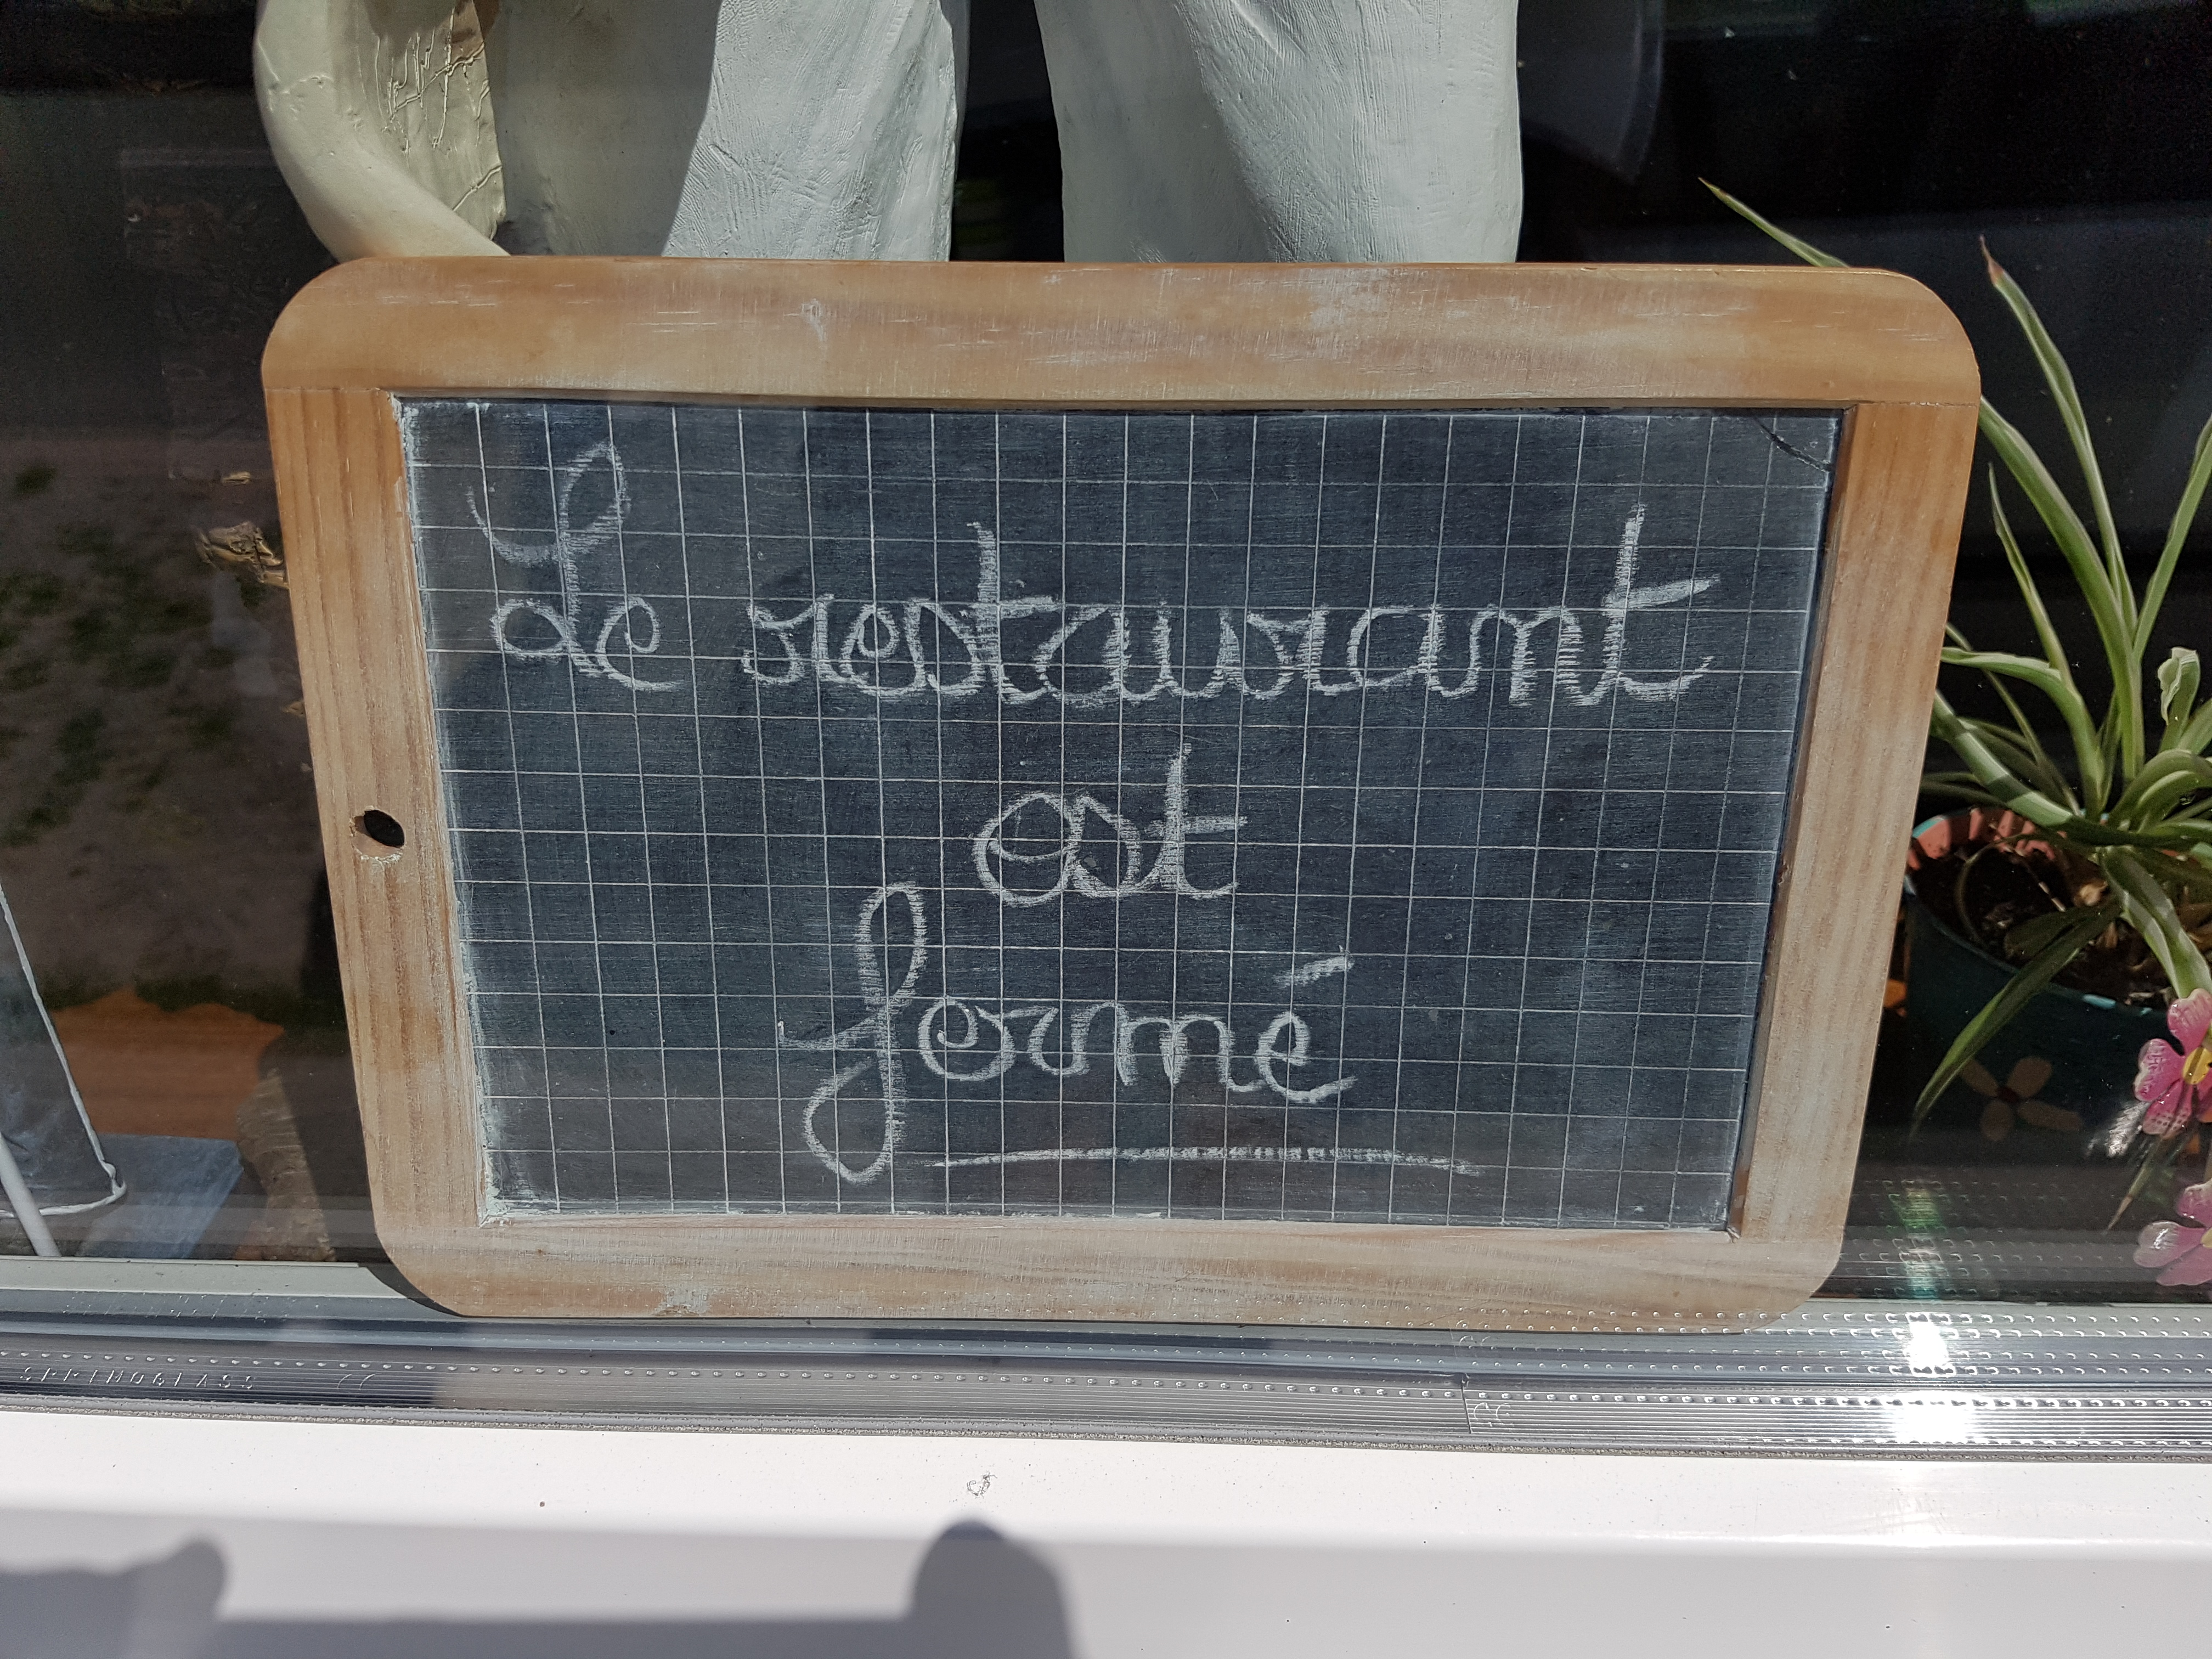 Le restaurant
est
fermé
SPRINGGLASS